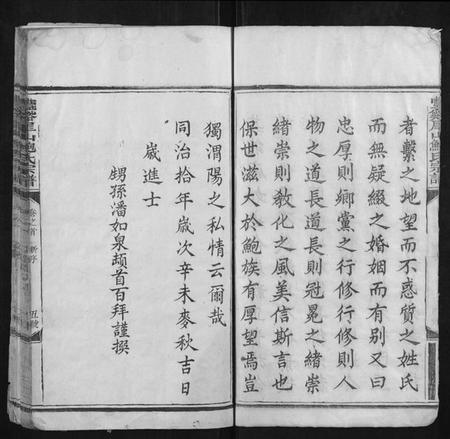 者繫之地望而不惑質之姓氏
而無疑綴之婚姻而有别又曰
忠厚則鄉黨之行修行修則人
物之道長道長則冠冕之緒崇
緒崇則教化之風美信斯言也
保世滋大於鮑族有厚望焉豈
獨渭陽之私情云爾哉
同治拾年歲次辛未麥秋吉日
歲進士
甥孫潘如泉頓首百拜謹撰
鮑氏宗譜
卷之首
新序